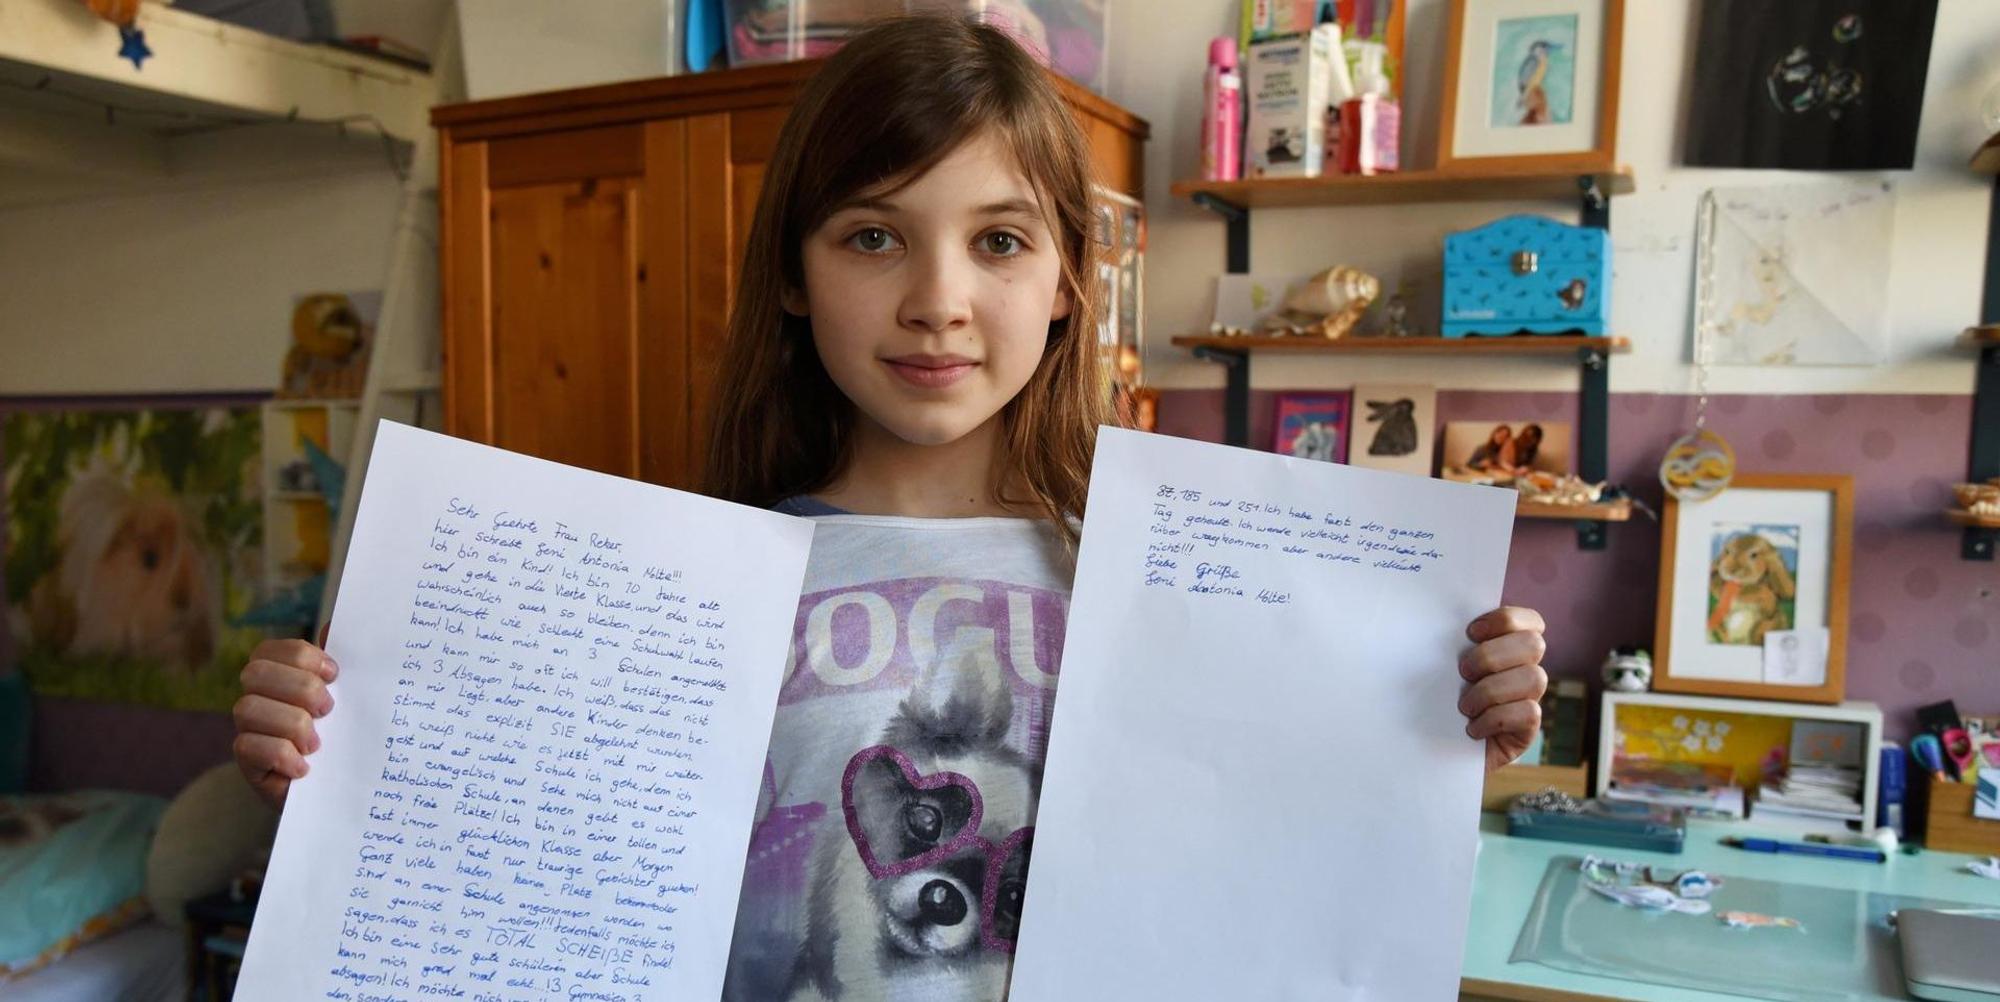 Sehr Geehrte Frau Reker,
hier schreibt Leni Antonia Nolte!!!
Ich bin ein Kind! Ich bin 10 Jahre alt
und gehe in die Vierte Klasse, und das wird
wahrscheinlich auch so bleiben. denn ich bin
beeindruckt wie schlecht eine Schulwahl laufen
kann! Ich habe mich an 3 Schulen angemeldet
und kann mir so oft ich will bestätigen, dass
ich 3 Absagen habe. Ich weiß, dass das nicht
an mir liegt, aber andere Kinder denken be-
stimmt das explizit SIE abgelehnt wurden.
Ich weiß nicht wie es jetzt mit mir weiter
geht und auf welche Schule ich gehe, denn ich
bin evangelisch und sehe mich nicht auf einer
katholischen Schule, an denen gebt es wohl
noch freie Plätze! Ich bin in einer tollen und
fast immer glücklichen Klasse aber Morgen
werde ich in fast nur traurige Gesichter gucken!
Ganz viele haben keinen Platz oder
sind an einer Schule angenommen worden wo
sie garnicht hin wollen!!! Jedenfalls möchte ich
sagen, dass ich es TOTAL SCHEIßE finde!
Ich bin eine sehr gute schülerin aber Schule
kann mich grad mal echt...! 3 Gymnasien 3
absagen! Ich möchte nich
den, sondern
87, 185 und 251. Ich habe fast den ganzen
Tag geheult. Ich werde vielleicht irgendwie da-
rüber wegkommen aber andere vielleicht
nicht!!!
Liebe Grüße
Leni Antonia Nolte!
OGU